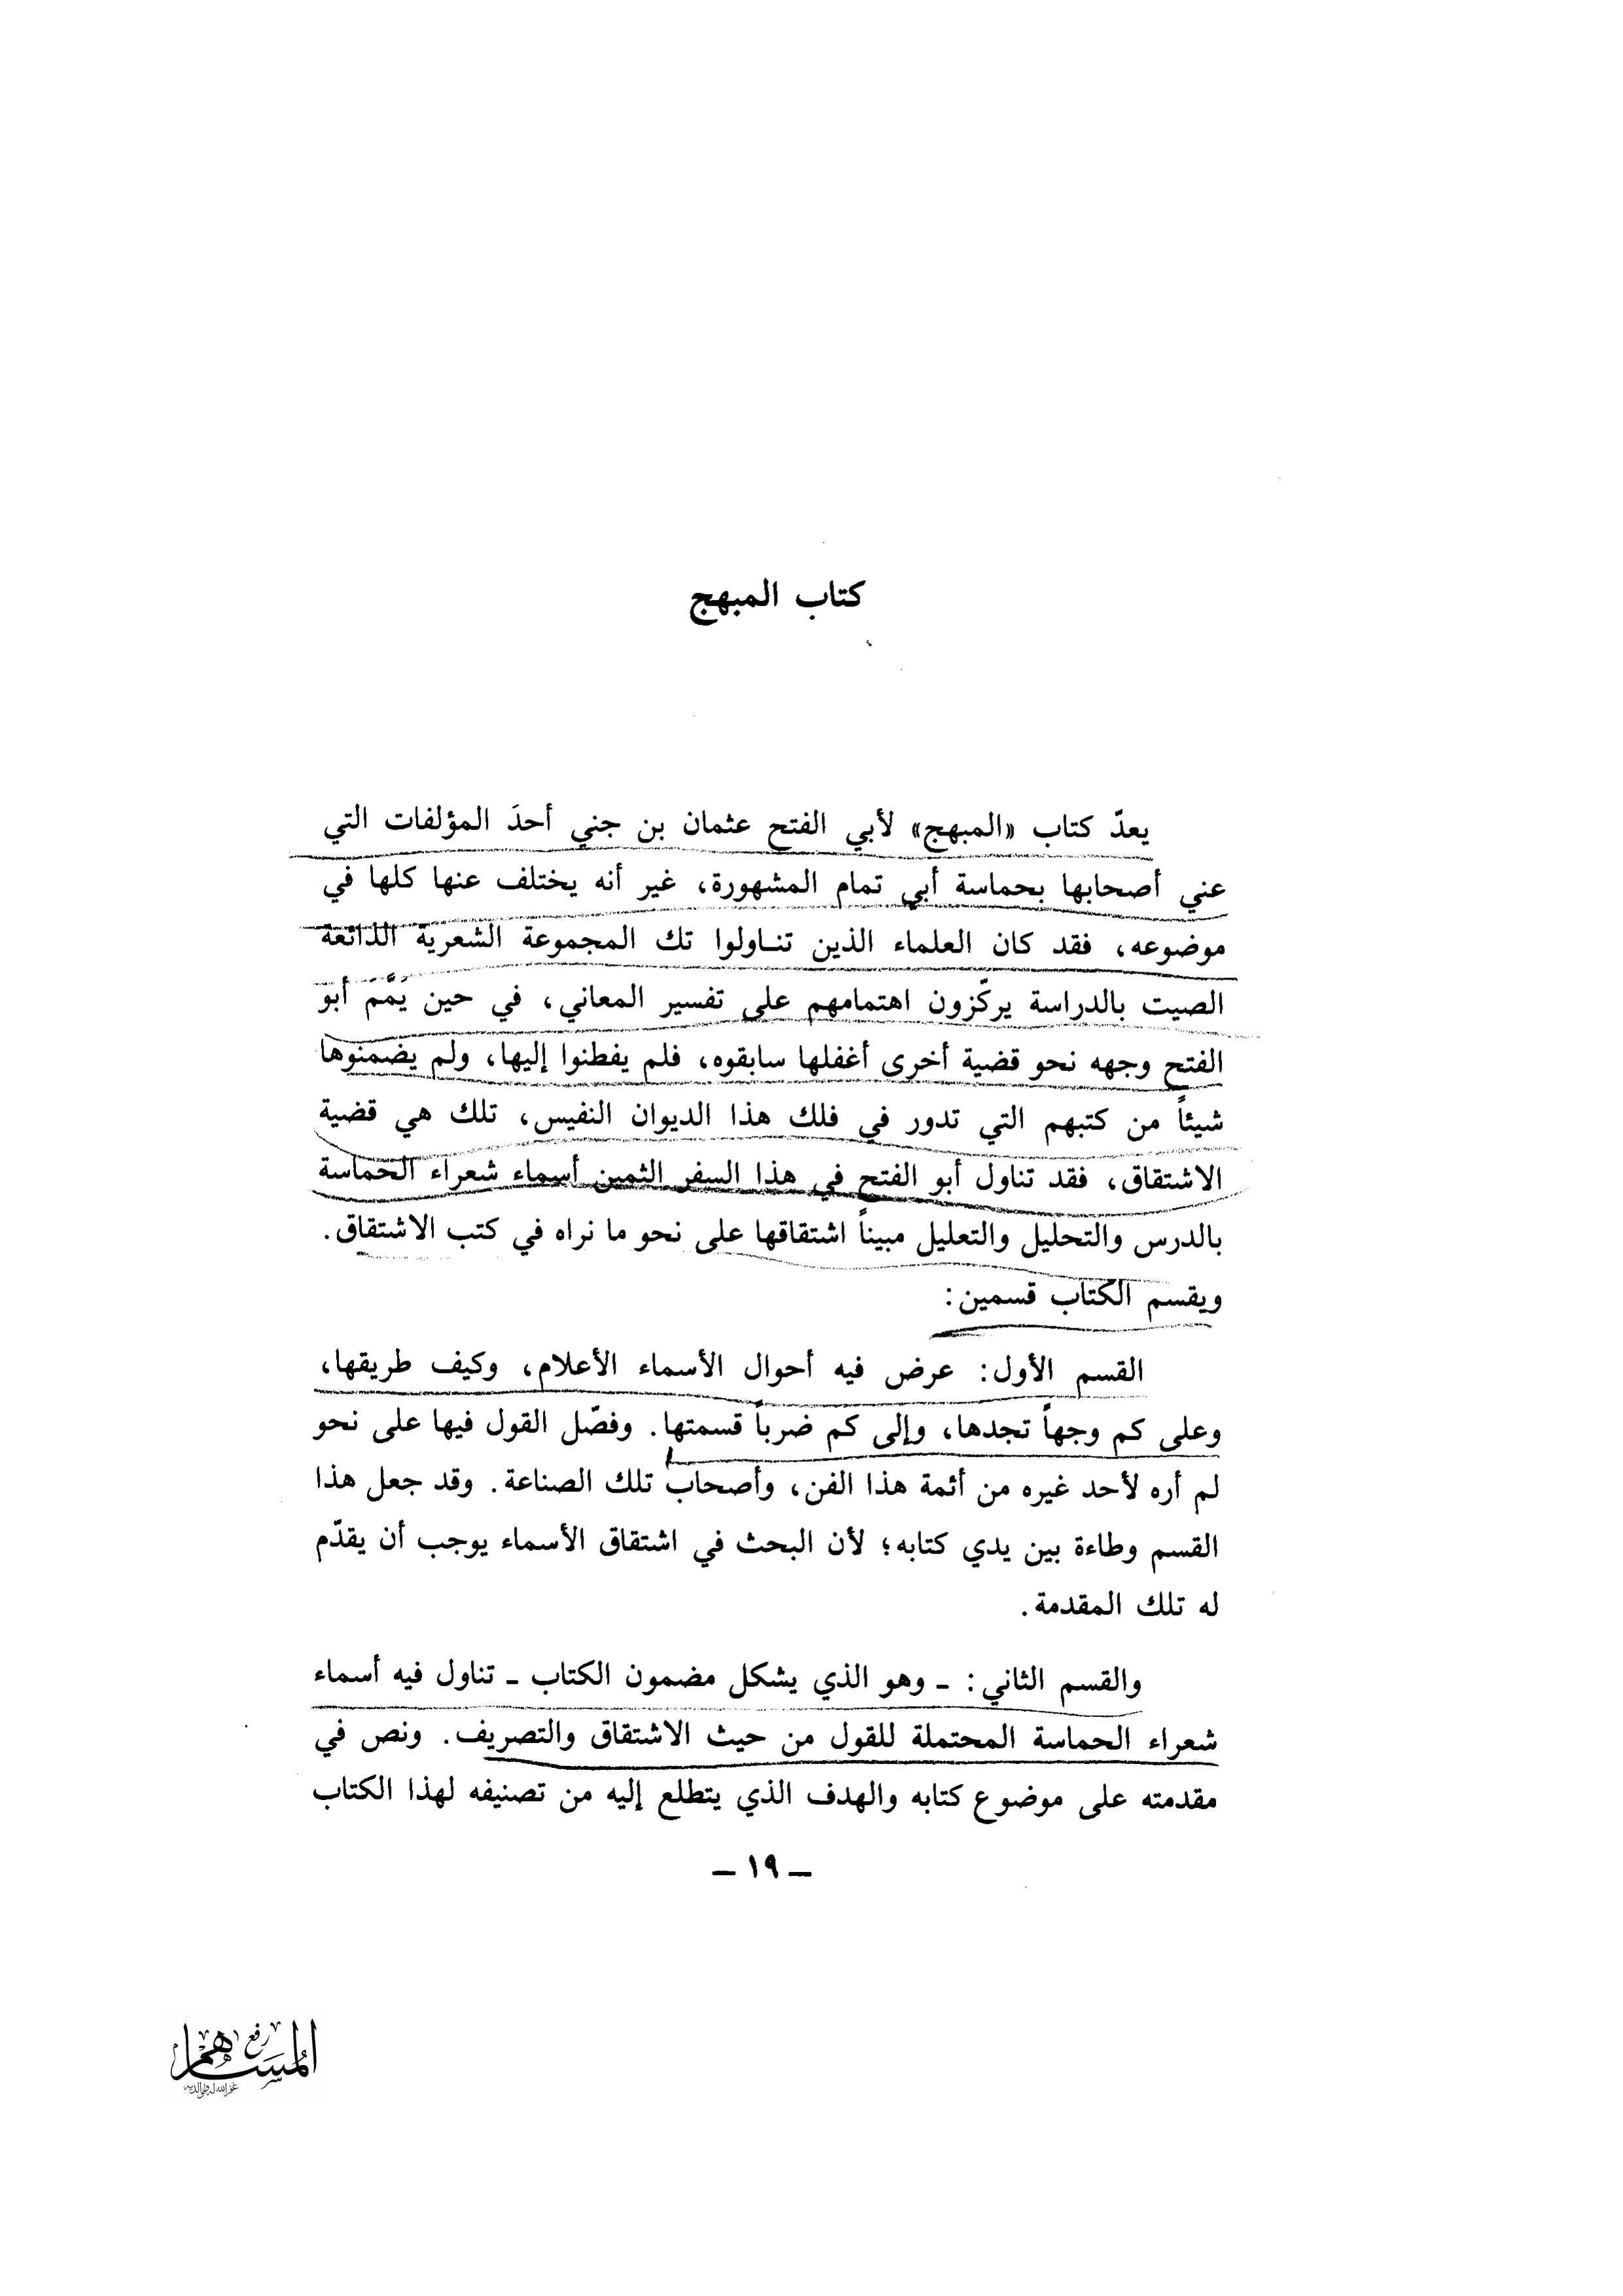 كتاب المبهج
يعدّ كتاب «المبهج» لأبي الفتح عثمان بن جني أحدَ المؤلفات التي
عني أصحابها بحماسة أبي تمام المشهورة، غير أنه يختلف عنها كلها في
موضوعه، فقد كان العلماء الذين تناولوا تك المجموعة الشعرية الذائعة
الصيت بالدراسة يركّزون اهتمامهم على تفسير المعاني، في حين يَمَّمَ أبو
الفتح وجهه نحو قضية أخرى أغفلها سابقوه، فلم يفطنوا إليها، ولم يضمنوها
شيئاً من كتبهم التي تدور في فلك هذا الديوان النفيس، تلك هي قضية
الاشتقاق، فقد تناول أبو الفتح في هذا السفر الثمين أسماء شعراء الحماسة
بالدرس والتحليل والتعليل مبيناً اشتقاقها على نحو ما نراه في كتب الاشتقاق.
ويقسم الكتاب قسمين:
القسم الأول: عرض فيه أحوال الأسماء الأعلام، وكيف طريقها،
وعلى كم وجهاً تجدها، وإلى كم ضرباً قسمتها. وفصّل القول فيها على نحو
لم أره لأحد غيره من أئمة هذا الفن، وأصحاب تلك الصناعة. وقد جعل هذا
القسم وطاءة بين يدي كتابه؛ لأن البحث في اشتقاق الأسماء يوجب أن يقدّم
له تلك المقدمة.
والقسم الثاني: ـ وهو الذي يشكل مضمون الكتاب ـ تناول فيه أسماء
شعراء الحماسة المحتملة للقول من حيث الاشتقاق والتصريف. ونص في
مقدمته على موضوع كتابه والهدف الذي يتطلع إليه من تصنيفه لهذا الكتاب
ـ ١٩ ـ
رفع
المساهم
غفر الله له ولوالديه